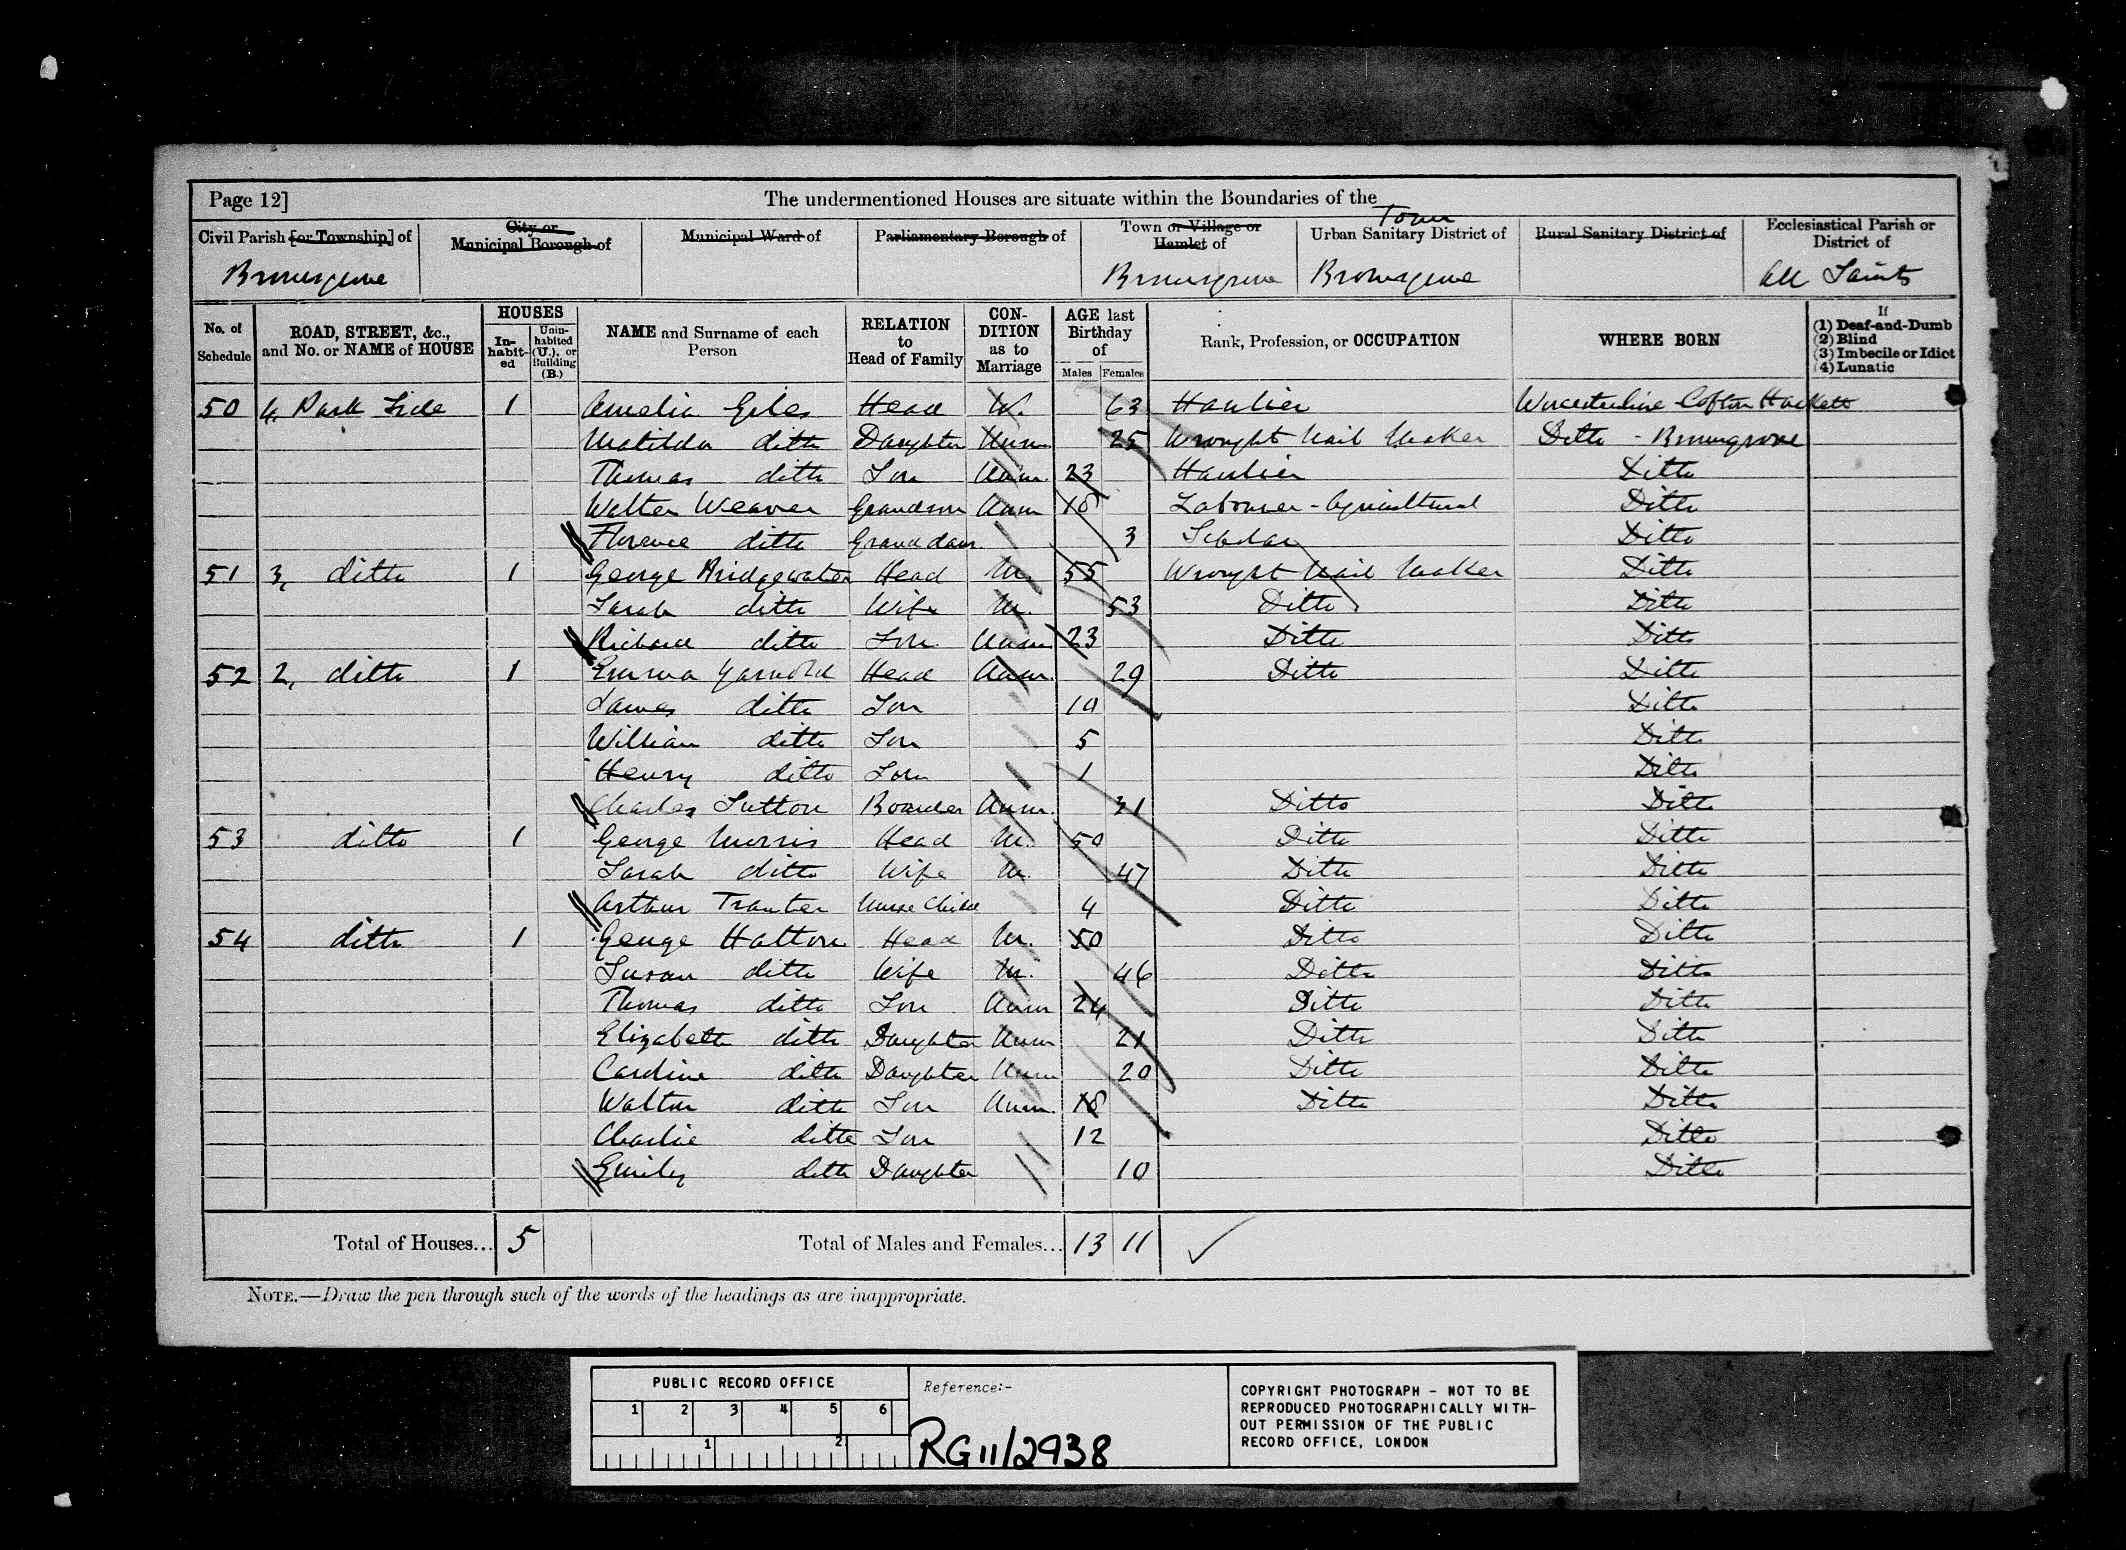 Page 12] The undermentioned Houses are situate within the Boundaries of the
Civil Parish [or Township] of City or Municipal Borough of Municipal Ward of Parliamentary Borough of Town or Village or Hamlet of Town Urban Sanitary District of Rural Sanitary District of Ecclesiastical Parish or District of
Bromsgrove Bromsgrove Bromsgrove All Saints
No. of Schedule ROAD, STREET, &c., and No. or NAME of HOUSE HOUSES In-habit-ed Unin-habited (U.), or Building (B.) NAME and Surname of each Person RELATION to Head of Family CON-DITION as to Marriage AGE last Birthday of Males Females Rank, Profession, or OCCUPATION WHERE BORN If (1) Deaf-and-Dumb (2) Blind (3) Imbecile or Idiot (4) Lunatic
50 4, Park Side 1 Amelia Giles Head W. 63 Haulier Worcestershire Cofton Hackett
Matilda ditto Daughter Unm. 25 Wrought Nail Maker Ditto - Bromsgrove
Thomas ditto Son Unm. 23 Haulier Ditto
Walter Weaver Grandson Unm 18 Labourer - Agricultural Ditto
Florence ditto Grand daur. 3 Scholar Ditto
51 3, ditto 1 George Bridgewater Head M. 55 Wrought Nail Maker Ditto
Sarah ditto Wife M. 53 Ditto Ditto
Richard ditto Son Unm 23 Ditto Ditto
52 2, ditto 1 Emma Yarnold Head Unm. 29 Ditto Ditto
James ditto Son 10 Ditto
William ditto Son 5 Ditto
Henry ditto Son 1 Ditto
Charles Sutton Boarder Unm. 31 Ditto Ditto
53 ditto 1 George Morris Head M. 50 Ditto Ditto
Sarah ditto Wife M. 47 Ditto Ditto
Arthur Tranter Nurse Child 4 Ditto Ditto
54 ditto 1 George Hatton Head M. 50 Ditto Ditto
Susan ditto Wife M. 46 Ditto Ditto
Thomas ditto Son Unm 24 Ditto Ditto
Elizabeth ditto Daughter Unm 21 Ditto Ditto
Caroline ditto Daughter Unm 20 Ditto Ditto
Walter ditto Son Unm. 18 Ditto Ditto
Charlie ditto Son 12 Ditto
Emily ditto Daughter 10 Ditto
Total of Houses... 5 Total of Males and Females... 13 11
NOTE.—Draw the pen through such of the words of the headings as are inappropriate.
PUBLIC RECORD OFFICE
1 2 3 4 5 6
1 2
Reference:-
RG 11/2938
COPYRIGHT PHOTOGRAPH - NOT TO BE
REPRODUCED PHOTOGRAPHICALLY WITH-
OUT PERMISSION OF THE PUBLIC
RECORD OFFICE, LONDON